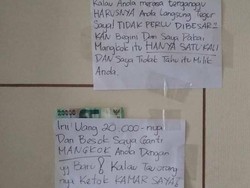 Kalau Anda merasa terganggu
HARUSNYA Anda Langsung Tegur
Saya! TIDAK PERLU DIBESAR2
KAN Begini Dan Saya Pakai
Mangkok itu HANYA SATU KALI
DAN Saya Tidak Tahu itu Milik
Anda.
Ini Uang 20.000-nya
Dan Besok Saya Ganti
MANGKOK Anda Dengan
yg Baru! Kalau
nya Ketok KAMAR SAYA!